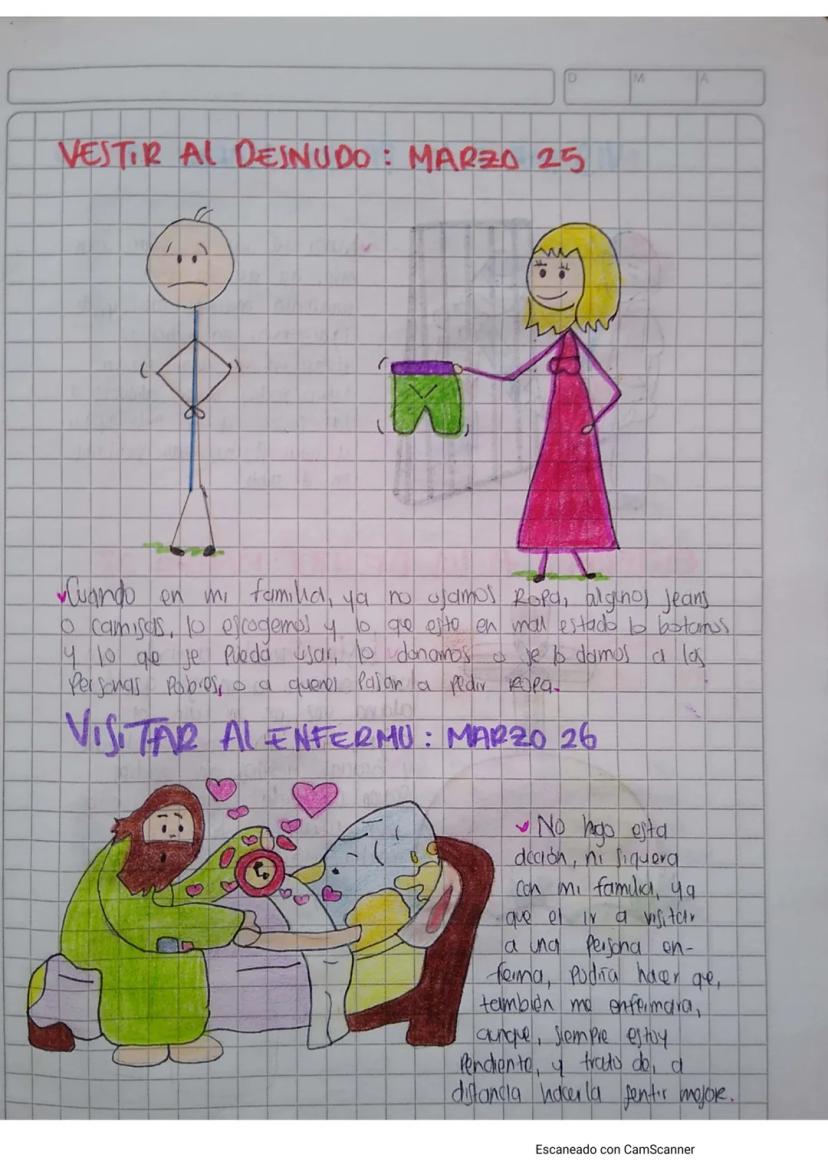 D M A
VESTIR AL DESNUDO: MARZO 25
Cuando en mi familia, ya no usamos Ropa, algunos jeans
o camisas, lo escogemos y lo que este en mal estado lo botamos
y lo que se pueda usar, lo donamos o se lo damos a las
Personas Pobres, o a quenes Pasan a Pedir ropa.
VISITAR Al ENFERMO: MARZO 26
No hago esta
acción, ni siquera
con mi familia, ya
que el ir a visitar
a una Persona en-
ferma, Podría hacer que,
también me enfermara,
aunque, siempre estoy
Pendiente, y trato de, a
distancia hacerla sentir mejor.
Escaneado con CamScanner